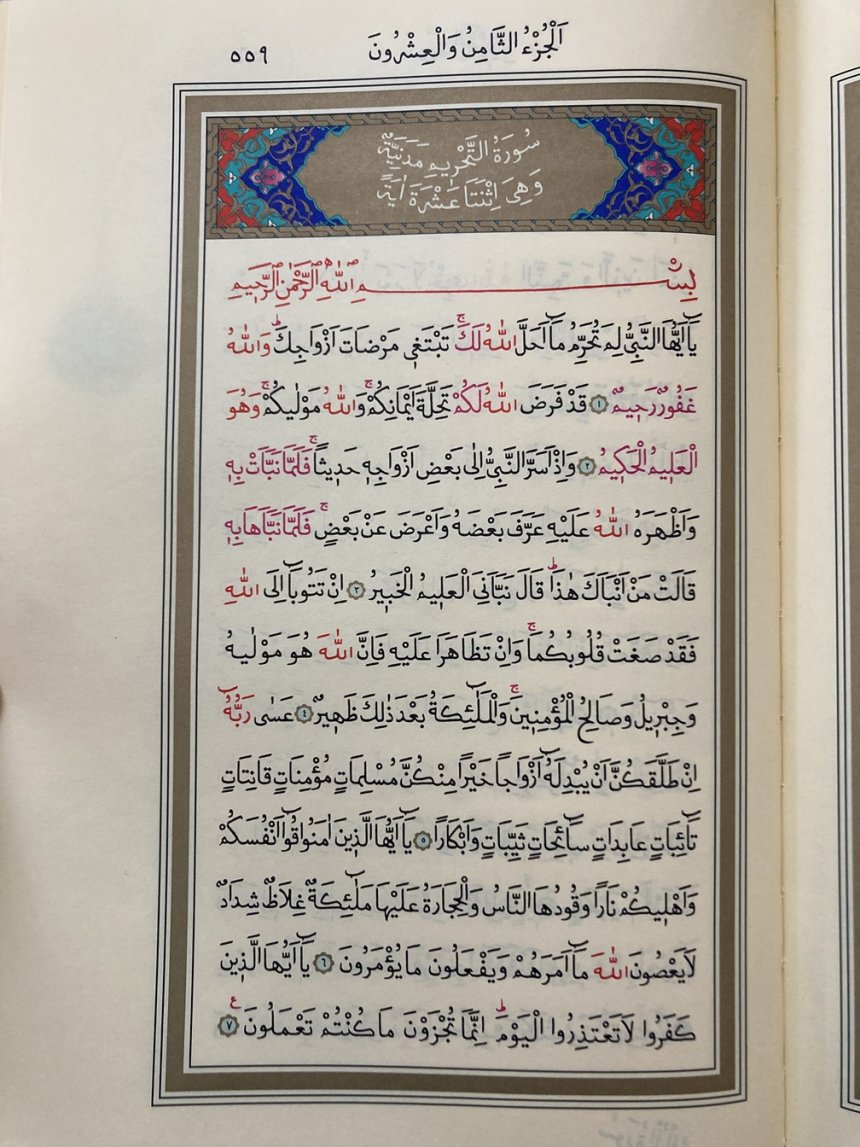 اَلْجُزْءُ الثَّامِنُ وَالْعِشْرُونَ
٥٥٩
سُورَةُ التَّحْرِيمِ مَدَنِيَّةٌ
وَهِىَ اِثْنَتَا عَشْرَةَ اٰيَةً
بِسْمِ اللّٰهِ الرَّحْمٰنِ الرَّحِيمِ
يَٓا اَيُّهَا النَّبِىُّ لِمَ تُحَرِّمُ مَٓا اَحَلَّ اللّٰهُ لَكَۚ تَبْتَغٖى مَرْضَاتَ اَزْوَاجِكَۜ وَاللّٰهُ
غَفُورٌ رَحٖيمٌ ﴿١﴾ قَدْ فَرَضَ اللّٰهُ لَكُمْ تَحِلَّةَ اَيْمَانِكُمْۚ وَاللّٰهُ مَوْلٰيكُمْۚ وَهُوَ
الْعَلٖيمُ الْحَكٖيمُ ﴿٢﴾ وَاِذْ اَسَرَّ النَّبِىُّ اِلٰى بَعْضِ اَزْوَاجِهٖ حَدٖيثاًۚ فَلَمَّا نَبَّاَتْ بِهٖ
وَاَظْهَرَهُ اللّٰهُ عَلَيْهِ عَرَّفَ بَعْضَهُ وَاَعْرَضَ عَنْ بَعْضٍۚ فَلَمَّا نَبَّاَهَا بِهٖ
قَالَتْ مَنْ اَنْبَاَكَ هٰذَاۜ قَالَ نَبَّاَنِىَ الْعَلٖيمُ الْخَبٖيرُ ﴿٣﴾ اِنْ تَتُوبَٓا اِلَى اللّٰهِ
فَقَدْ صَغَتْ قُلُوبُكُمَاۚ وَاِنْ تَظَاهَرَا عَلَيْهِ فَاِنَّ اللّٰهَ هُوَ مَوْلٰيهُ
وَجِبْرٖيلُ وَصَالِحُ الْمُؤْمِنٖينَۚ وَالْمَلٰٓئِكَةُ بَعْدَ ذٰلِكَ ظَهٖيرٌ ﴿٤﴾ عَسٰى رَبُّهُٓ
اِنْ طَلَّقَكُنَّ اَنْ يُبْدِلَهُٓ اَزْوَاجاً خَيْراً مِنْكُنَّ مُسْلِمَاتٍ مُؤْمِنَاتٍ قَانِتَاتٍ
تَٓائِبَاتٍ عَابِدَاتٍ سَٓائِحَاتٍ ثَيِّبَاتٍ وَاَبْكَاراً ﴿٥﴾ يَٓا اَيُّهَا الَّذٖينَ اٰمَنُوا قُٓوا اَنْفُسَكُمْ
وَاَهْلٖيكُمْ نَاراً وَقُودُهَا النَّاسُ وَالْحِجَارَةُ عَلَيْهَا مَلٰٓئِكَةٌ غِلَاظٌ شِدَادٌ
لَا يَعْصُونَ اللّٰهَ مَٓا اَمَرَهُمْ وَيَفْعَلُونَ مَا يُؤْمَرُونَ ﴿٦﴾ يَٓا اَيُّهَا الَّذٖينَ
كَفَرُوا لَا تَعْتَذِرُوا الْيَوْمَۜ اِنَّمَا تُجْزَوْنَ مَا كُنْتُمْ تَعْمَلُونَ ﴿٧﴾ ع